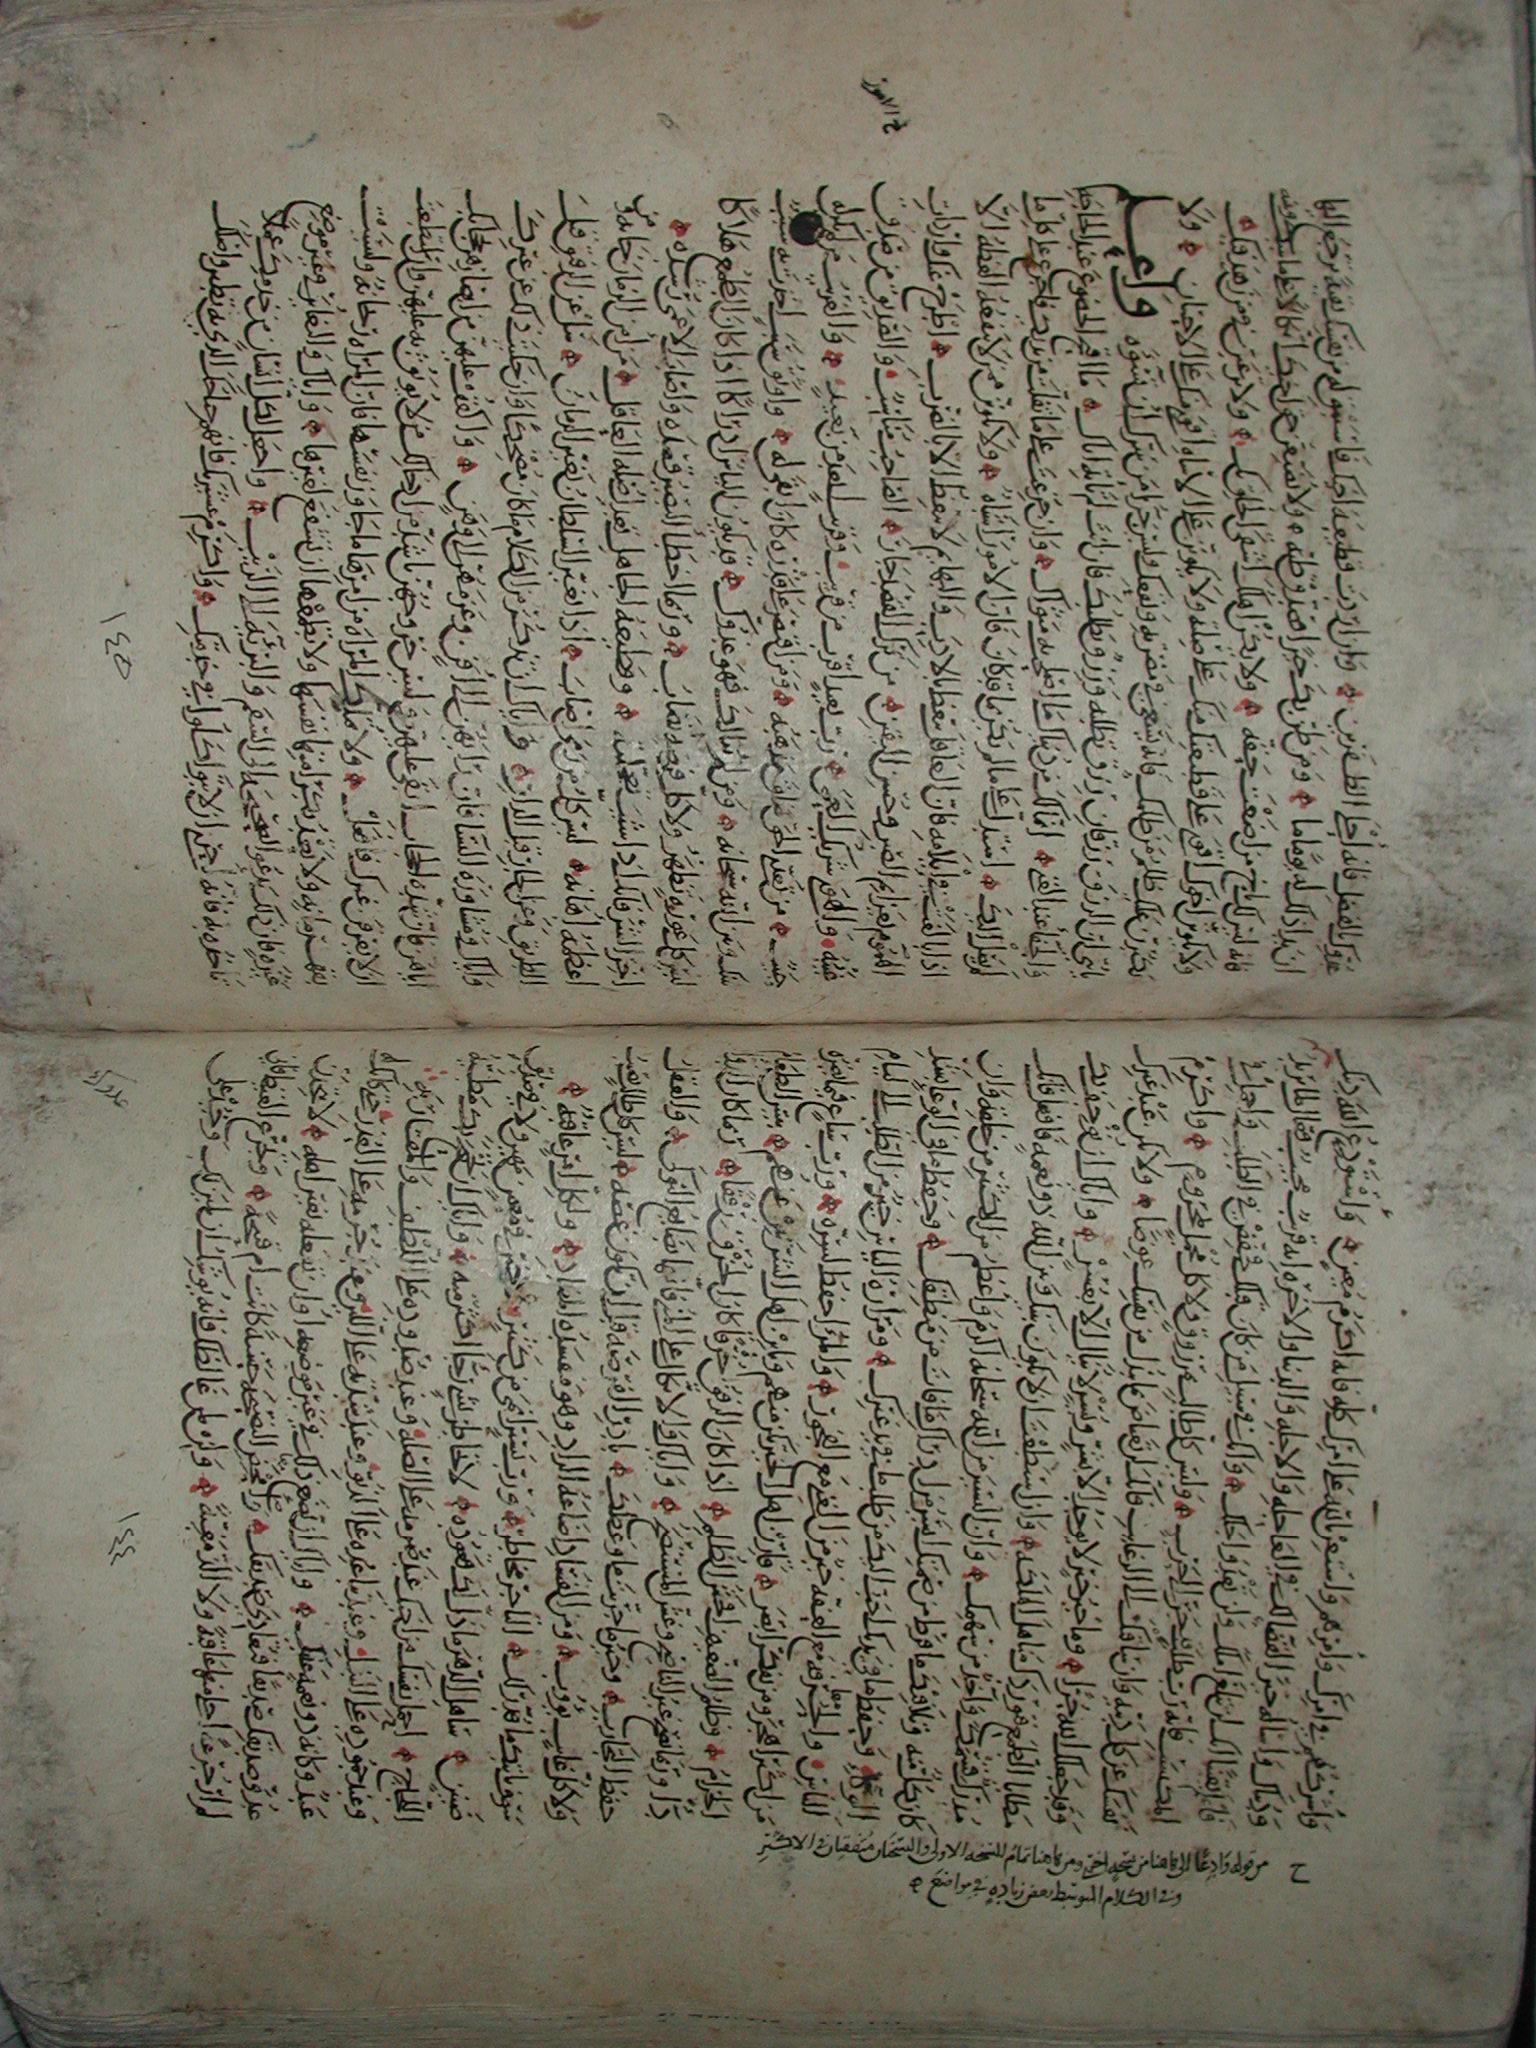 واشركهم في امرك وامرهم واستعن بالله على امورك فانه اكرم معين ۞ واستودع الله دينك
ودنياك واساله خير القضاء لك في العاجله والاجله والدنيا والاخره انه قريب مجيب
يقينا انك لن تبلغ املك ولن تعدو اجلك ۞ وانك في سبيل من كان قبلك فخفض في الطلب واجمل في
المكتسب فانه رب طلب قد جر الى حرب ۞ وليس كل طالب بمرزوق ولا كل مجمل بمحروم ۞ واكرم
نفسك عن كل دنيه وان ساقتك الى الرغائب فانك لن تعتاض بما تبذل من نفسك عوضا ۞ ولا تكن عبد غيرك
وقد جعلك الله حرا ۞ وما خير خير لا يوجد الا بشر ويسر لا ينال الا بعسر ۞ واياك ان توجف بك
مطايا الطمع فتوردك مناهل الهلكه ۞ وان استطعت ان لا يكون بينك وبين الله ذو نعمه فافعل فانك
مدرك قسمك واخذ سهمك ۞ وان اليسير من الله سبحانه اكرم واعظم من الكثير من خلقه وان
كان كل منه ۞ وتلافيك ما فرط من صمتك ايسر من ادراك ما فات من منطقك ۞ وحفظ ما في الوعاء بشد
الوكاء ۞ وحفظ ما في يديك احب الي من طلب ما في يد غيرك ۞ ومرارة الياس خير من الطلب الى
الناس ۞ والحرفه مع العفه خير من الغنى مع الفجور ۞ والمرء احفظ لسره ۞ ورب ساع فيما يضره
من اكثر اهجر ومن تفكر ابصر ۞ قارن اهل الخير تكن منهم وباين اهل الشر تبن عنهم ۞ بئس الطعام
الحرام ۞ وظلم الضعيف افحش الظلم ۞ اذا كان الرفق خرقا كان الخرق رفقا ۞ ربما كان الدواء
داء وربما نصح غير الناصح وغش المستنصح ۞ واياك والاتكال على المنى فانها بضائع النوكى ۞ والعقل
حفظ التجارب ۞ وخير ما جربت ما وعظك ۞ بادر الفرصه قبل ان تكون غصه ۞ ليس كل طالب يصيب
ولا كل غائب يؤوب ۞ ومن الفساد اضاعة الزاد ومفسدة المعاد ۞ ولكل امر عاقبه ۞
سوف ياتيك ما قدر لك ۞ التاجر مخاطر ۞ ورب يسير انمى من كثير ۞ لا خير في معين مهين ولا في صديق
ظنين ۞ ساهل الدهر ما ذل لك قعوده ۞ لا تخاطر بشيء رجاء اكثر منه ۞ واياك ان تجمح بك مطية
اللجاج ۞ احمل نفسك من اخيك عند صرمه على الصله وعند صدوده على اللطف والمقاربه
وعند جموده على البذل وعند تباعده على الدنو وعند شدته على اللين وعند جرمه على العذر حتى كانك له
عبد وكانه ذو نعمه عليك ۞ واياك ان تضع ذلك في غير موضعه او ان تفعله بغير اهله ۞ لا تتخذن
عدو صديقك صديقا فتعادي صديقك ۞ وامحض اخاك النصيحه حسنه كانت ام قبيحه ۞ وتجرع الغيظ فاني
لم ار جرعه احلى منها عاقبه ولا الذ مغبه ۞ ولن لمن غالظك فانه يوشك ان يلين لك وخذ على
ح من قوله وادعا الى هاهنا من نسخه اخرى ومن هاهنا تمام للنسخه الاولى والنسختان متفقتان في الاكثر
وفي الكلام المتوسط بعض زياده في مواضع
١٤٤
عدوك
عدوك بالفضل فانه احلى الظفرين ۞ وان اردت قطيعة اخيك فاستبق له من نفسك بقيه ترجع اليها
ان بدا ذلك له يوما ما ۞ ومن ظن بك خيرا فصدق ظنه ۞ ولا تضيعن حق اخيك اتكالا على ما بينك وبينه
فانه ليس لك باخ من اضعت حقه ۞ ولا يكن اهلك اشقى الخلق بك ۞ ولا ترغبن في من زهد فيك ۞
ولا يكونن اخوك اقوى على قطيعتك منك على صلته ولا يكونن على الاساءه اقوى منك على الاحسان ۞ ولا
يكبرن عليك ظلم من ظلمك فانه يسعى في مضرته ونفعك وليس جزاء من سرك ان تسوءه ۞ واعلم
يا بني ان الرزق رزقان رزق تطلبه ورزق يطلبك فان انت لم تاته اتاك ۞ ما اقبح الخضوع عند الحاجه
والجفاء عند الغنى ۞ انما لك من دنياك ما اصلحت به مثواك ۞ وان جزعت على ما تفلت من يديك فاجزع على كل ما
لم يصل اليك ۞ استدل على ما لم يكن بما قد كان فان الامور اشباه ۞ ولا تكونن ممن لا تنفعه العظه الا
اذا بالغت في ايلامه فان العاقل يتعظ بالادب والبهايم لا تتعظ الا بالضرب ۞ اطرح عنك واردات
الهموم بعزايم الصبر وحسن اليقين ۞ من ترك القصد جار ۞ الصاحب مناسب ۞ والصديق من صدق
غيبه ۞ والهوى شريك العمى ۞ رب بعيد اقرب من قريب وقريب ابعد من بعيد ۞ والغريب من لم يكن له
حبيب ۞ من تعدى الحق ضاق مذهبه ۞ ومن اقتصر على قدره كان ابقى له ۞ واوثق سبب اخذت به سبب
بينك وبين الله سبحانه ۞ ومن لم يبالك فهو عدوك ۞ قد يكون الياس ادراكا اذا كان الطمع هلاكا
ليس كل عوره تظهر ولا كل فرصه تصاب ۞ وربما اخطا البصير قصده واصاب الاعمى رشده ۞
اخر الشر فانك اذا شئت تعجلته ۞ وقطيعة الجاهل تعدل صلة العاقل ۞ من امن الزمان خانه ومن
اعظمه اهانه ۞ ليس كل من رمى اصاب ۞ اذا تغير السلطان تغير الزمان ۞ سل عن الرفيق قبل
الطريق وعن الجار قبل الدار ۞ واياك ان تذكر من الكلام ما كان مضحكا وان حكيت ذلك عن غيرك
واياك ومشاورة النساء فان رايهن الى افن وعزمهن الى وهن ۞ واكفف عليهن من ابصارهن بحجابك
اياهن فان شدة الحجاب ابقى عليهن وليس خروجهن باشد من ادخالك من لا يوثق به عليهن وان استطعت
الا يعرفن غيرك فافعل ۞ ولا تملك المراه من امرها ما جاوز نفسها فان المراه ريحانه وليست
بقهرمانه ولا تعد بكرامتها نفسها ولا تطمعها ان تشفع لغيرها ۞ واياك والتغاير في غير موضع
غيره فان ذلك يدعو الصحيحه الى السقم والبريئه الى الريب ۞ واجعل لكل انسان من خدمك عملا
تاخذه به فانه احرى ان لا يتواكلوا في خدمتك ۞ واكرم عشيرتك فانهم جناحك الذي به تطير واصلك
١٤٥